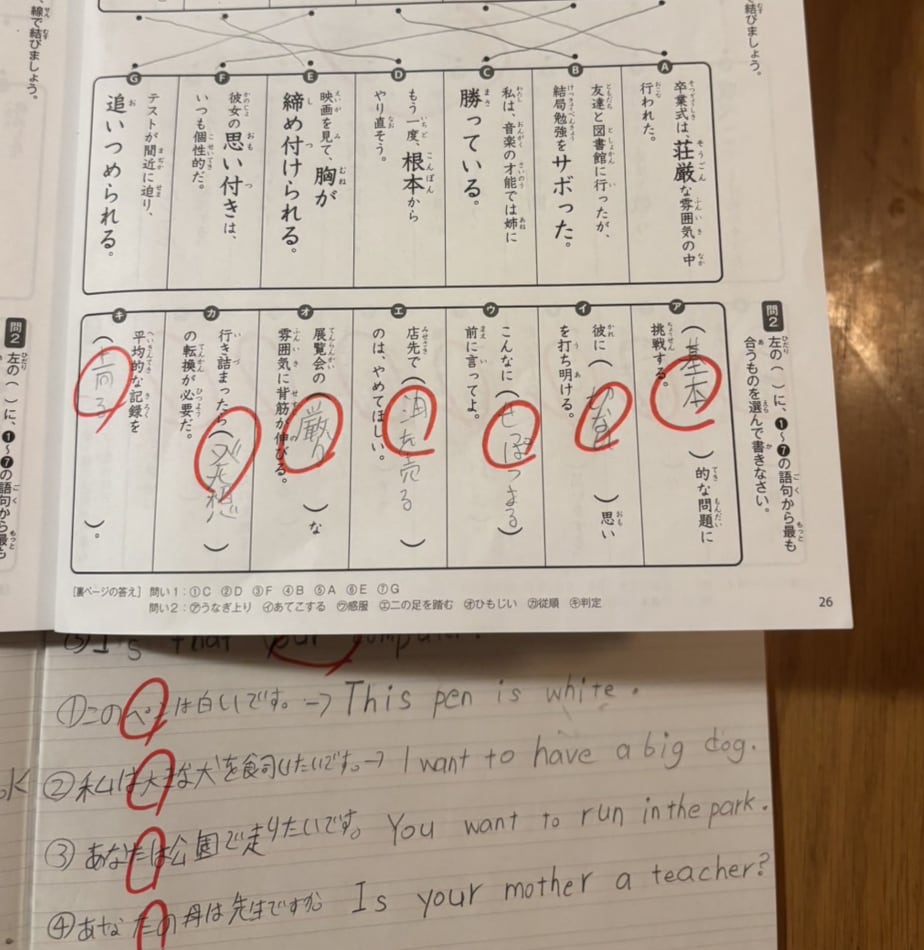 線で結びましょう。
線で結びましょう。
A
卒業式は、荘厳な雰囲気の中
行われた。
B
友達と図書館に行ったが、
結局勉強をサボった。
C
私は、音楽の才能では姉に
勝っている。
D
もう一度、根本から
やり直そう。
E
映画を見て、胸が
締め付けられる。
F
彼女の思い付きは、
いつも個性的だ。
G
テストが間近に迫り、
追いつめられる。
問2
左の( )に、❶~❼の語句から最も
合うものを選んで書きなさい。
ア
(基本)的な問題に
挑戦する。
イ
彼に( )思い
を打ち明ける。
ウ
こんなに(せっぱつまる)
前に言ってよ。
エ
店先で(油を売る)
のは、やめてほしい。
オ
展覧会の(厳か)な
雰囲気に背筋が伸びる。
カ
行き詰まったら(発想)
の転換が必要だ。
キ
平均的な記録を
(上回る)。
問2
左の( )に、❶~❼の語句から最も
[裏ページの答え] 問い1:①C ②D ③F ④B ⑤A ⑥E ⑦G
問い2:㋐うなぎ上り ㋑あてこする ㋒感服 ㋓二の足を踏む ㋔ひもじい ㋕従順 ㋖判定
26
⑤Is that your computer?
①このペンは白いです。→ This pen is white.
②私は大きな犬を飼いたいです。→ I want to have a big dog.
③あなたは公園で走りたいです。 You want to run in the park.
④あなたの母は先生ですか。 Is your mother a teacher?